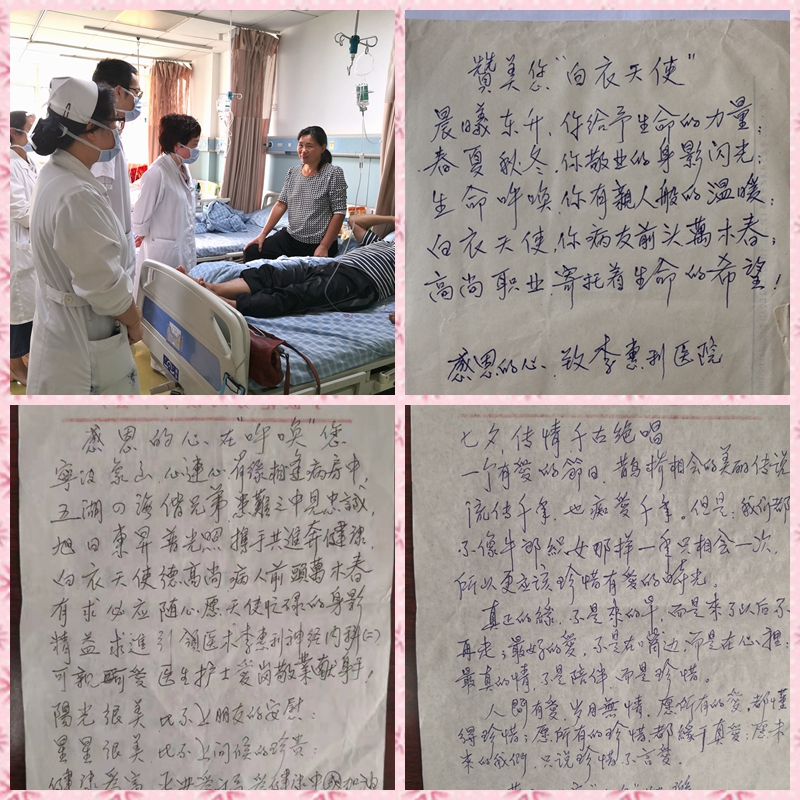 赞美您"白衣天使"
晨曦东升,你给予生命的力量;
春夏秋冬,你敬业的身影闪光;
生命呼唤,你有親人般的温暖;
白衣天使,你病友前头萬木春;
高尚职业,寄托着生命的希望!
感恩的心、致李惠利医院
感恩的心、在"呼唤"您
寧波象山心連心有缘相逢病房中,
五湖四海偕兄弟患難之中見忠誠,
旭日東昇普光照携手共進奔健康,
白衣天使德高尚病人前頭萬木春
有求必应随心愿天使忙碌的身影
精益求進引領医术李惠利神经内科(二)
可親可爱医生护士爱岗敬業献身手,
陽光很美,比不上朋友的安慰;
星星很美,比不上问候的珍贵;
七夕,传情千古绝唱
一个有爱的節日,鹊桥相会的美丽传说
流传千年,也痴爱千年。但是:我们都
不像牛郎织女那样一年只相会一次,
所以更应该珍惜有爱的時光。
真正的缘,不是来的早,而是来了以后不
再走;最好的爱,不是在嘴边,而是在心裡;
最真的情,不是陪伴,而是珍惜。
人間有爱,岁月無情,愿所有的爱,都懂
得珍惜;愿所有的珍惜,都缘于真爱;愿未
来的我們,只说珍惜不言爱。